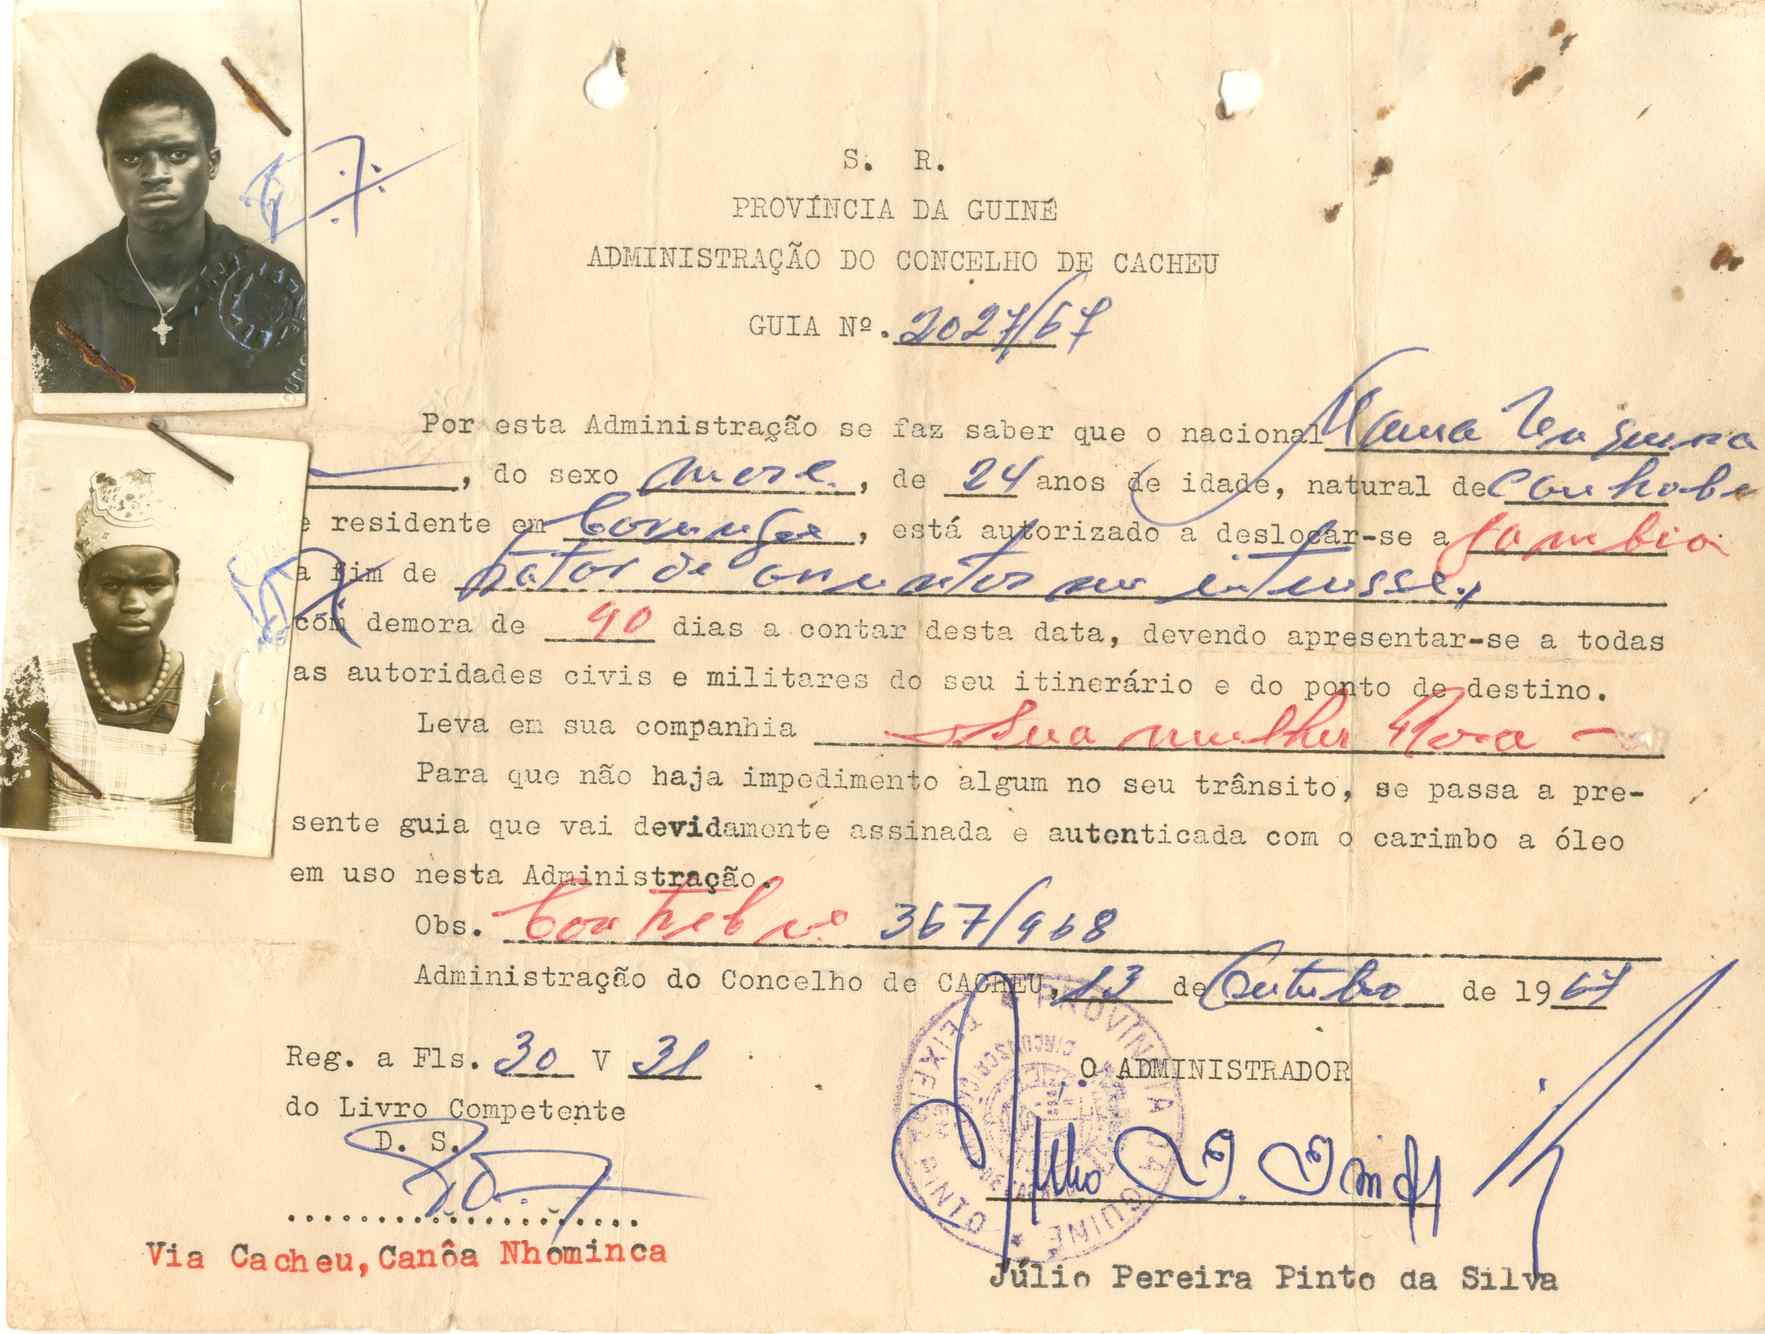 S. R.
PROVÍNCIA DA GUINÉ
ADMINISTRAÇÃO DO CONCELHO DE CACHEU
GUIA Nº. 2027/67
Por esta Administração se faz saber que o nacional
, do sexo masc., de 24 anos de idade, natural de
e residente em , está autorizado a deslocar-se a Gambia
a fim de tratar de assuntos seu interesse,
com demora de 90 dias a contar desta data, devendo apresentar-se a todas
as autoridades civis e militares do seu itinerário e do ponto de destino.
Leva em sua companhia Sua mulher Rosa -
Para que não haja impedimento algum no seu trânsito, se passa a pre-
sente guia que vai devidamente assinada e autenticada com o carimbo a óleo
em uso nesta Administração.
Obs. 367/968
Administração do Concelho de CACHEU, 13 de Outubro de 1967
Reg. a Fls. 30 V 31
do Livro Competente
D. S.
O ADMINISTRADOR
PROVÍNCIA DA GUINÉ
TEIXEIRA PINTO
Via Cacheu, Canôa Nhominca
Júlio Pereira Pinto da Silva